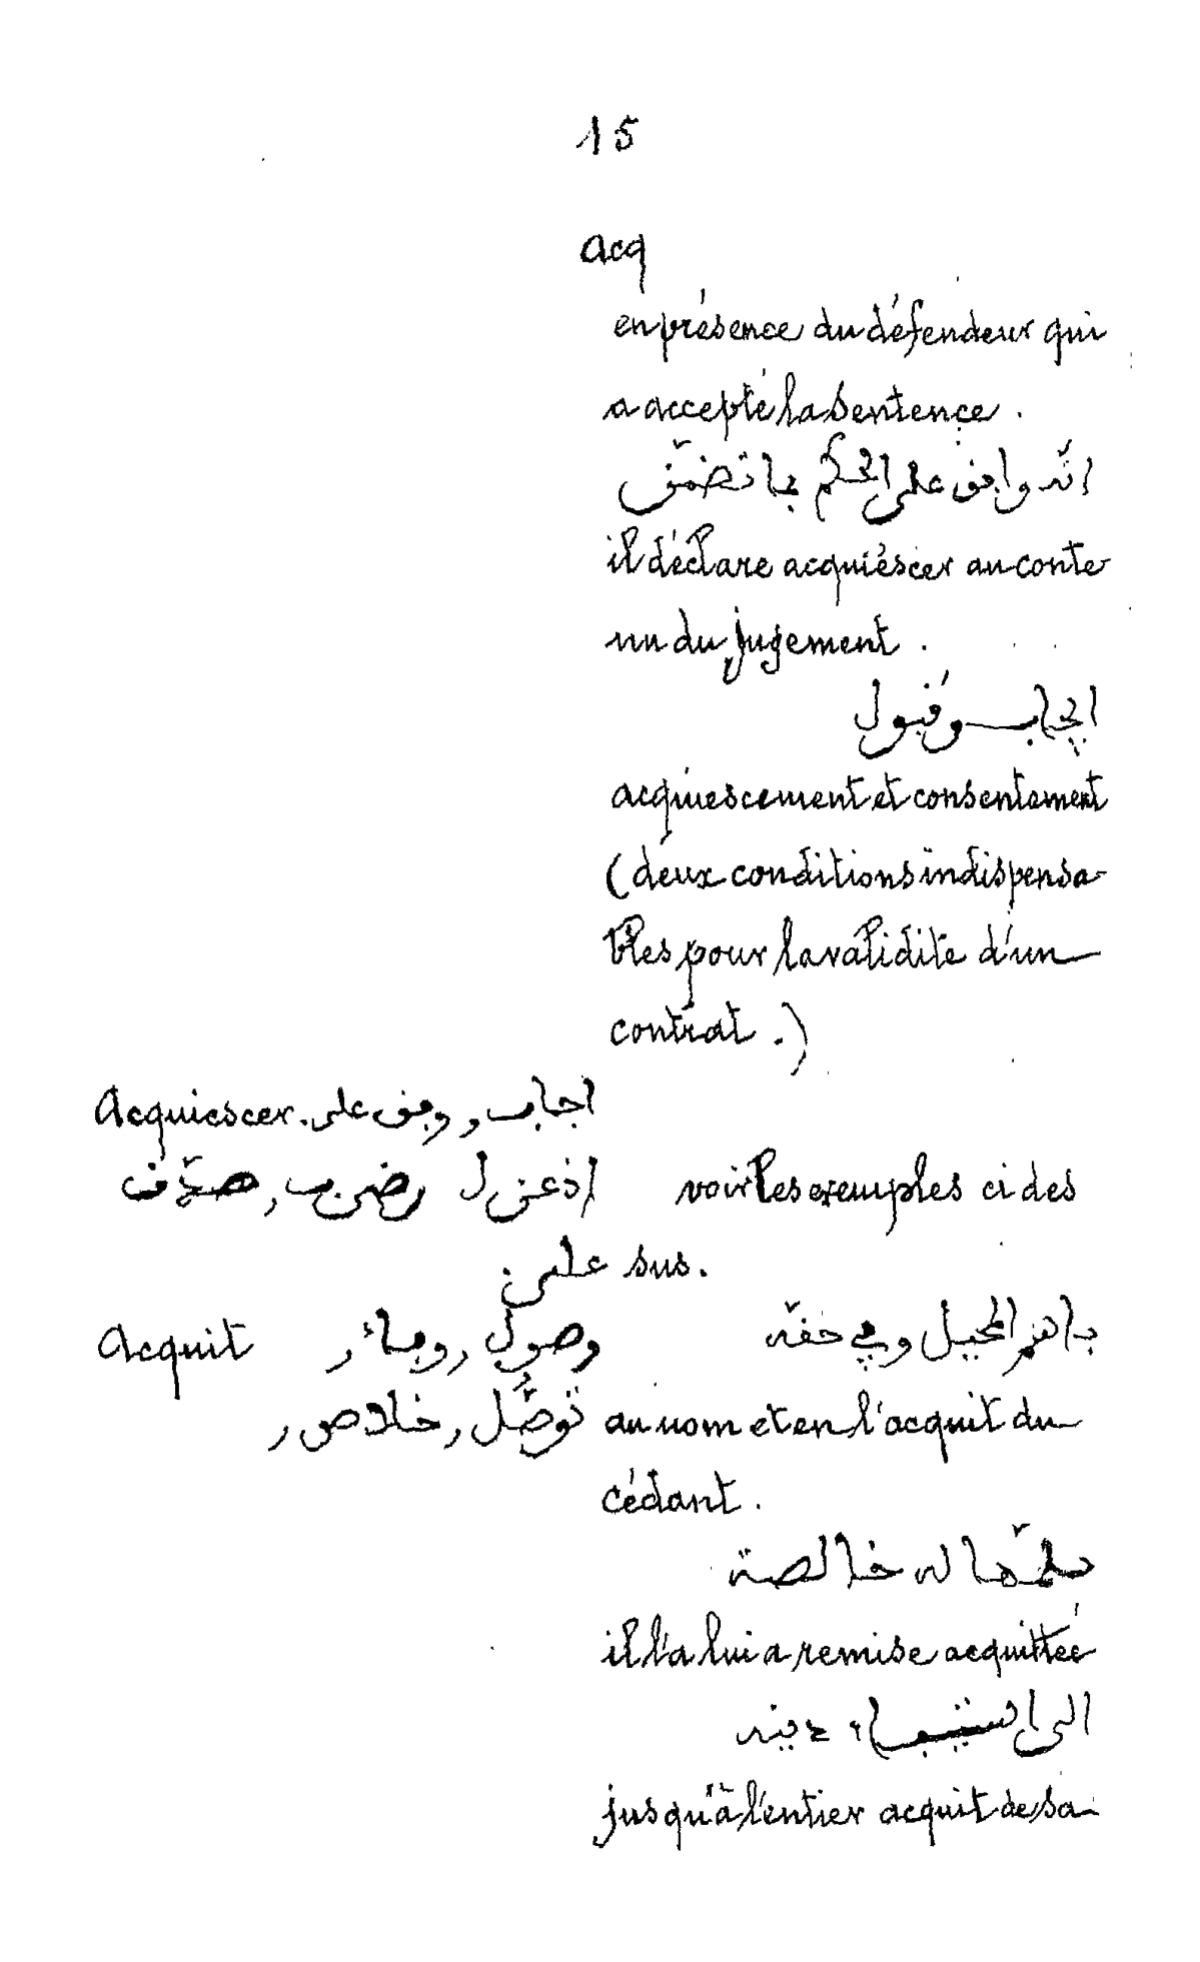 15
acq
en présence du défendeur qui
a accepté la sentence.
إنّه وافق على الحكم بما تضمّن
il déclare acquiéscer au conte-
nu du jugement.
ايجاب وقبول
acquiescement et consentement
(deux conditions indispensa-
bles pour la validité d'un
contrat.)
Acquiescer. اجاب, وفق على
اذعن ل رضى ب, صدّق voir les exemples ci des
على sus.
Acquit وصول, وفاء, باسم المحيل وفي حقّه
توصّل, خلاص, au nom et en l'acquit du
cédant.
سلّمها له خالصة
il l'a lui a remise acquittée
الى استيفاء دينه
jusqu'à l'entier acquit de sa